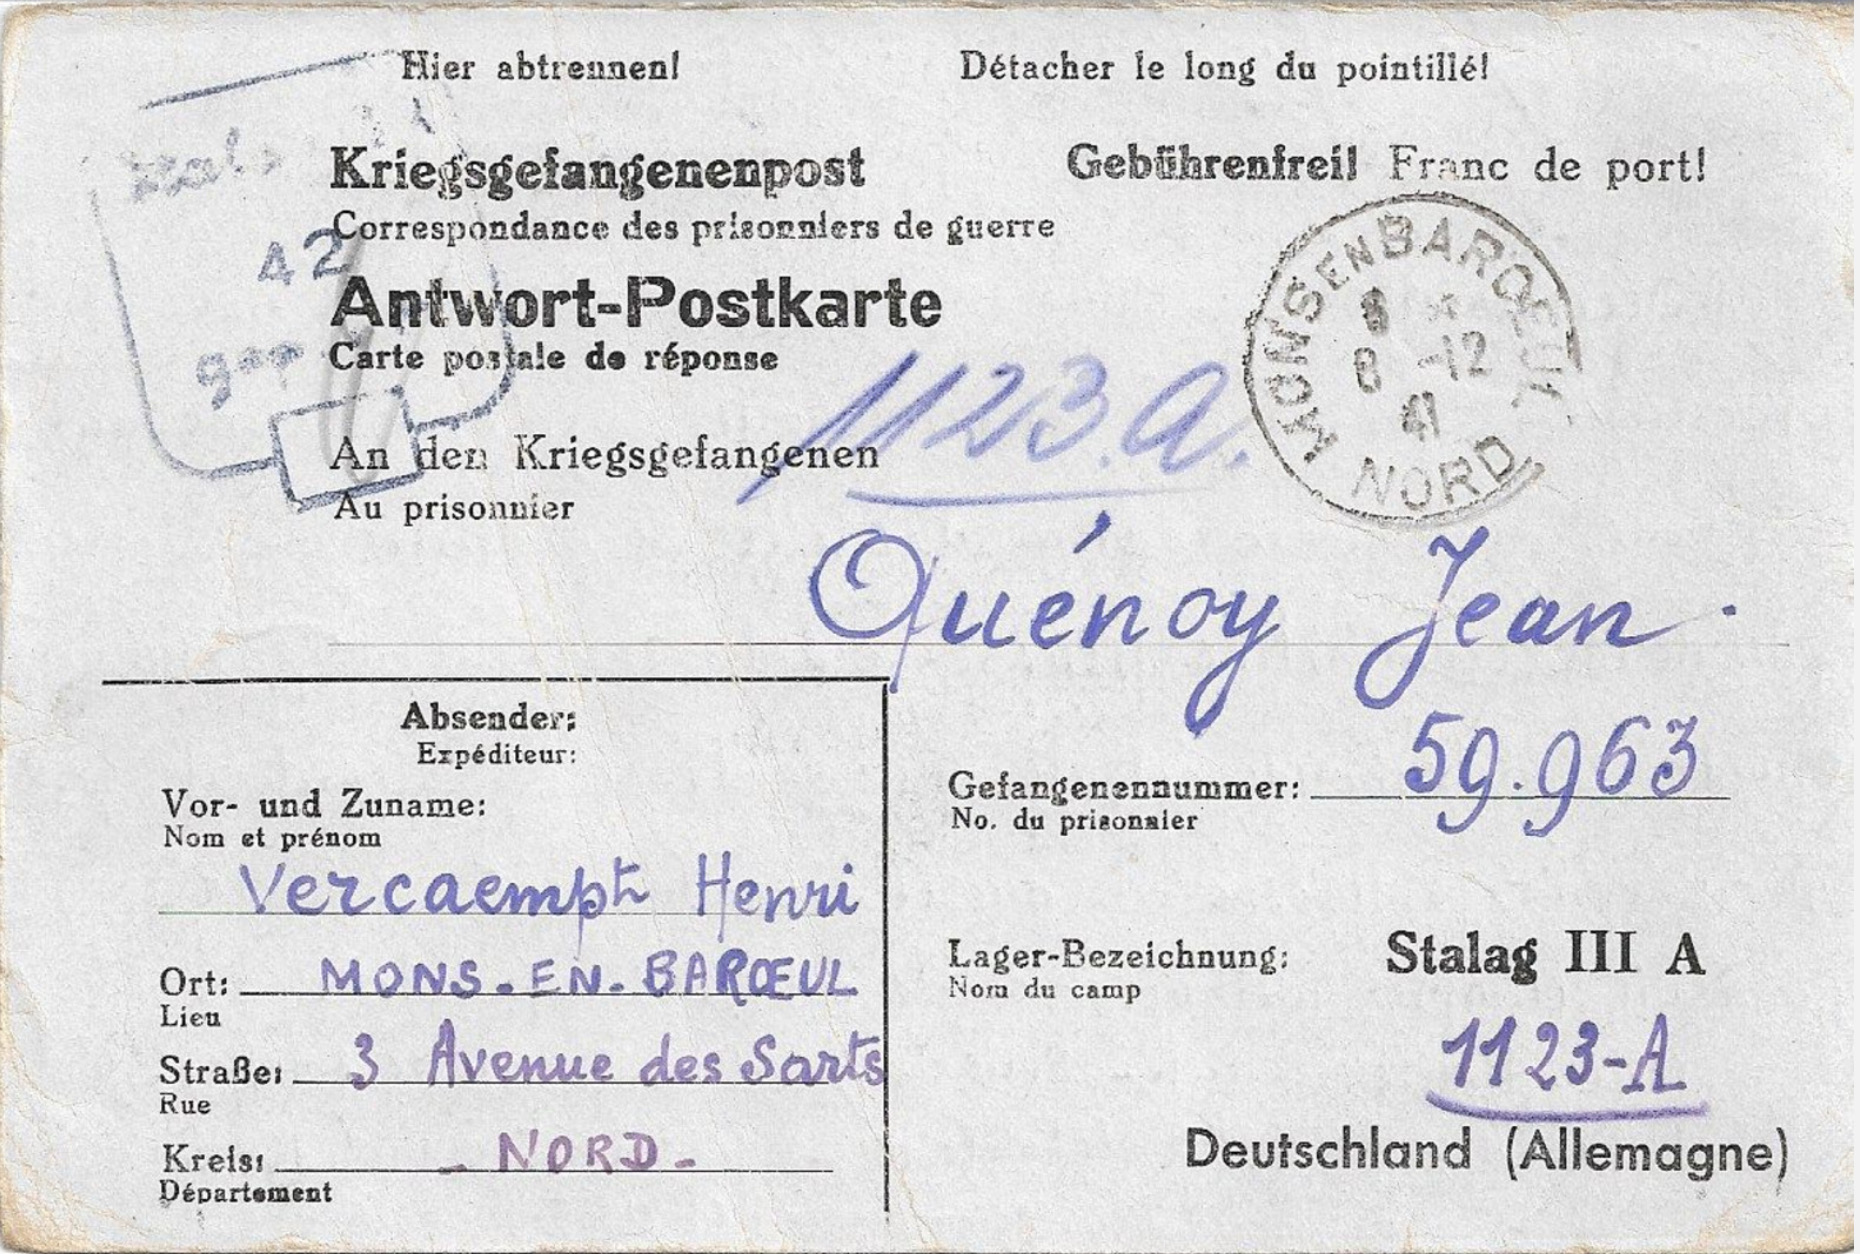 Hier abtrennen! Détacher le long du pointillé!
Kriegsgefangenenpost Gebührenfrei! Franc de port!
Correspondance des prisonniers de guerre
42
Antwort-Postkarte
Carte postale de réponse
gep
MONS EN BAROEUL
8 -12
41
NORD
1123.A.
An den Kriegsgefangenen
Au prisonnier
Quénoy Jean
Absender:
Expéditeur:
Vor- und Zuname:
Nom et prénom
Vercaempt Henri
Ort: MONS-EN-BARŒUL
Lieu
Straße: 3 Avenue des Sarts
Rue
Kreis: - NORD -
Département
Gefangenennummer: 59.963
No. du prisonnier
Lager-Bezeichnung: Stalag III A
Nom du camp
1123-A
Deutschland (Allemagne)